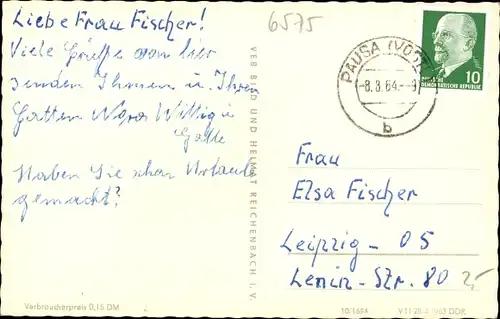 Liebe Frau Fischer!
Viele Grüße von hier
senden Ihnen u. Ihren
Gatten Nora Wittig u
Gatte
Haben Sie schon Urlaub
gemacht?
6575
VEB BILD UND HEIMAT REICHENBACH I. V.
PAUSA (VOGTL
-8.8.64.-9
b
10
DEUTSCHE
DEMOKRATISCHE REPUBLIK
Frau
Elsa Fischer
Leipzig - 05
Lenin-Str. 80
25
Verbraucherpreis 0,15 DM
10/1694
1963 DDR